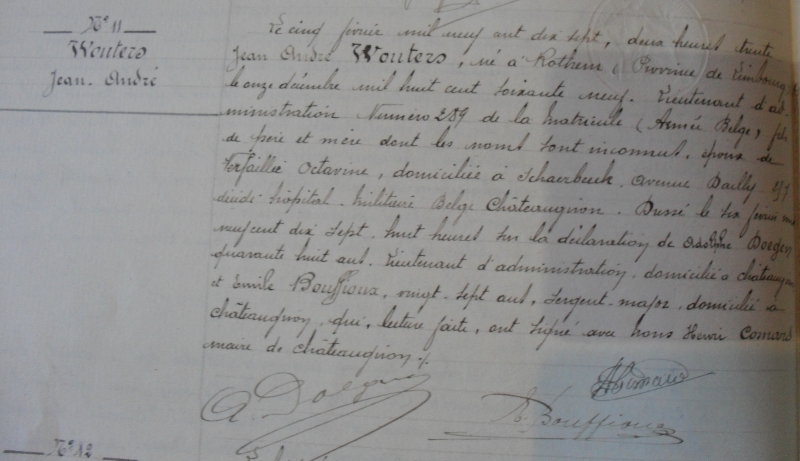 N° 11
Wouters
Jean-André
Le cinq février mil neuf cent dix sept, deux heures trente
Jean André Wouters, né à Rothem, Province de Limbourg
le onze décembre mil huit cent soixante neuf. Lieutenant d'ad-
ministration Numéro 289 de la matricule (Armée Belge, fils
de père et mère dont les noms sont inconnus, époux de
Verfaillie Octavine, domiciliée à Schaerbeek, avenue Dailly
décédé hôpital militaire Belge Châteaugiron. Dressé le six février mil
neuf cent dix sept. huit heures sur la déclaration de Adolphe Doegen
quarante huit ans. Lieutenant d'administration, domicilié à châteaugiron
et Emile Bouffioux, vingt-sept ans, Sergent-major, domicilié à
châteaugiron, qui, lecture faite, ont signé avec nous Henri Comard
maire de châteaugiron ./.
A. Doegen
E. Bouffioux
N° 12